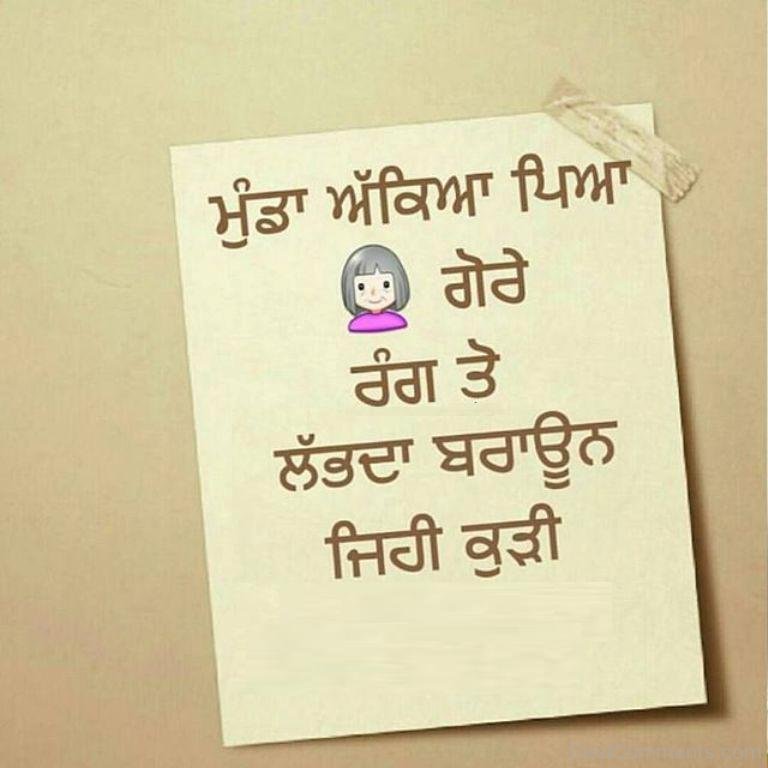 ਮੁੰਡਾ ਅੱਕਿਆ ਪਿਆ
ਗੋਰੇ
ਰੰਗ ਤੋ
ਲੱਭਦਾ ਬਰਾਊਨ
ਜਿਹੀ ਕੁੜੀ
DesiComments.com